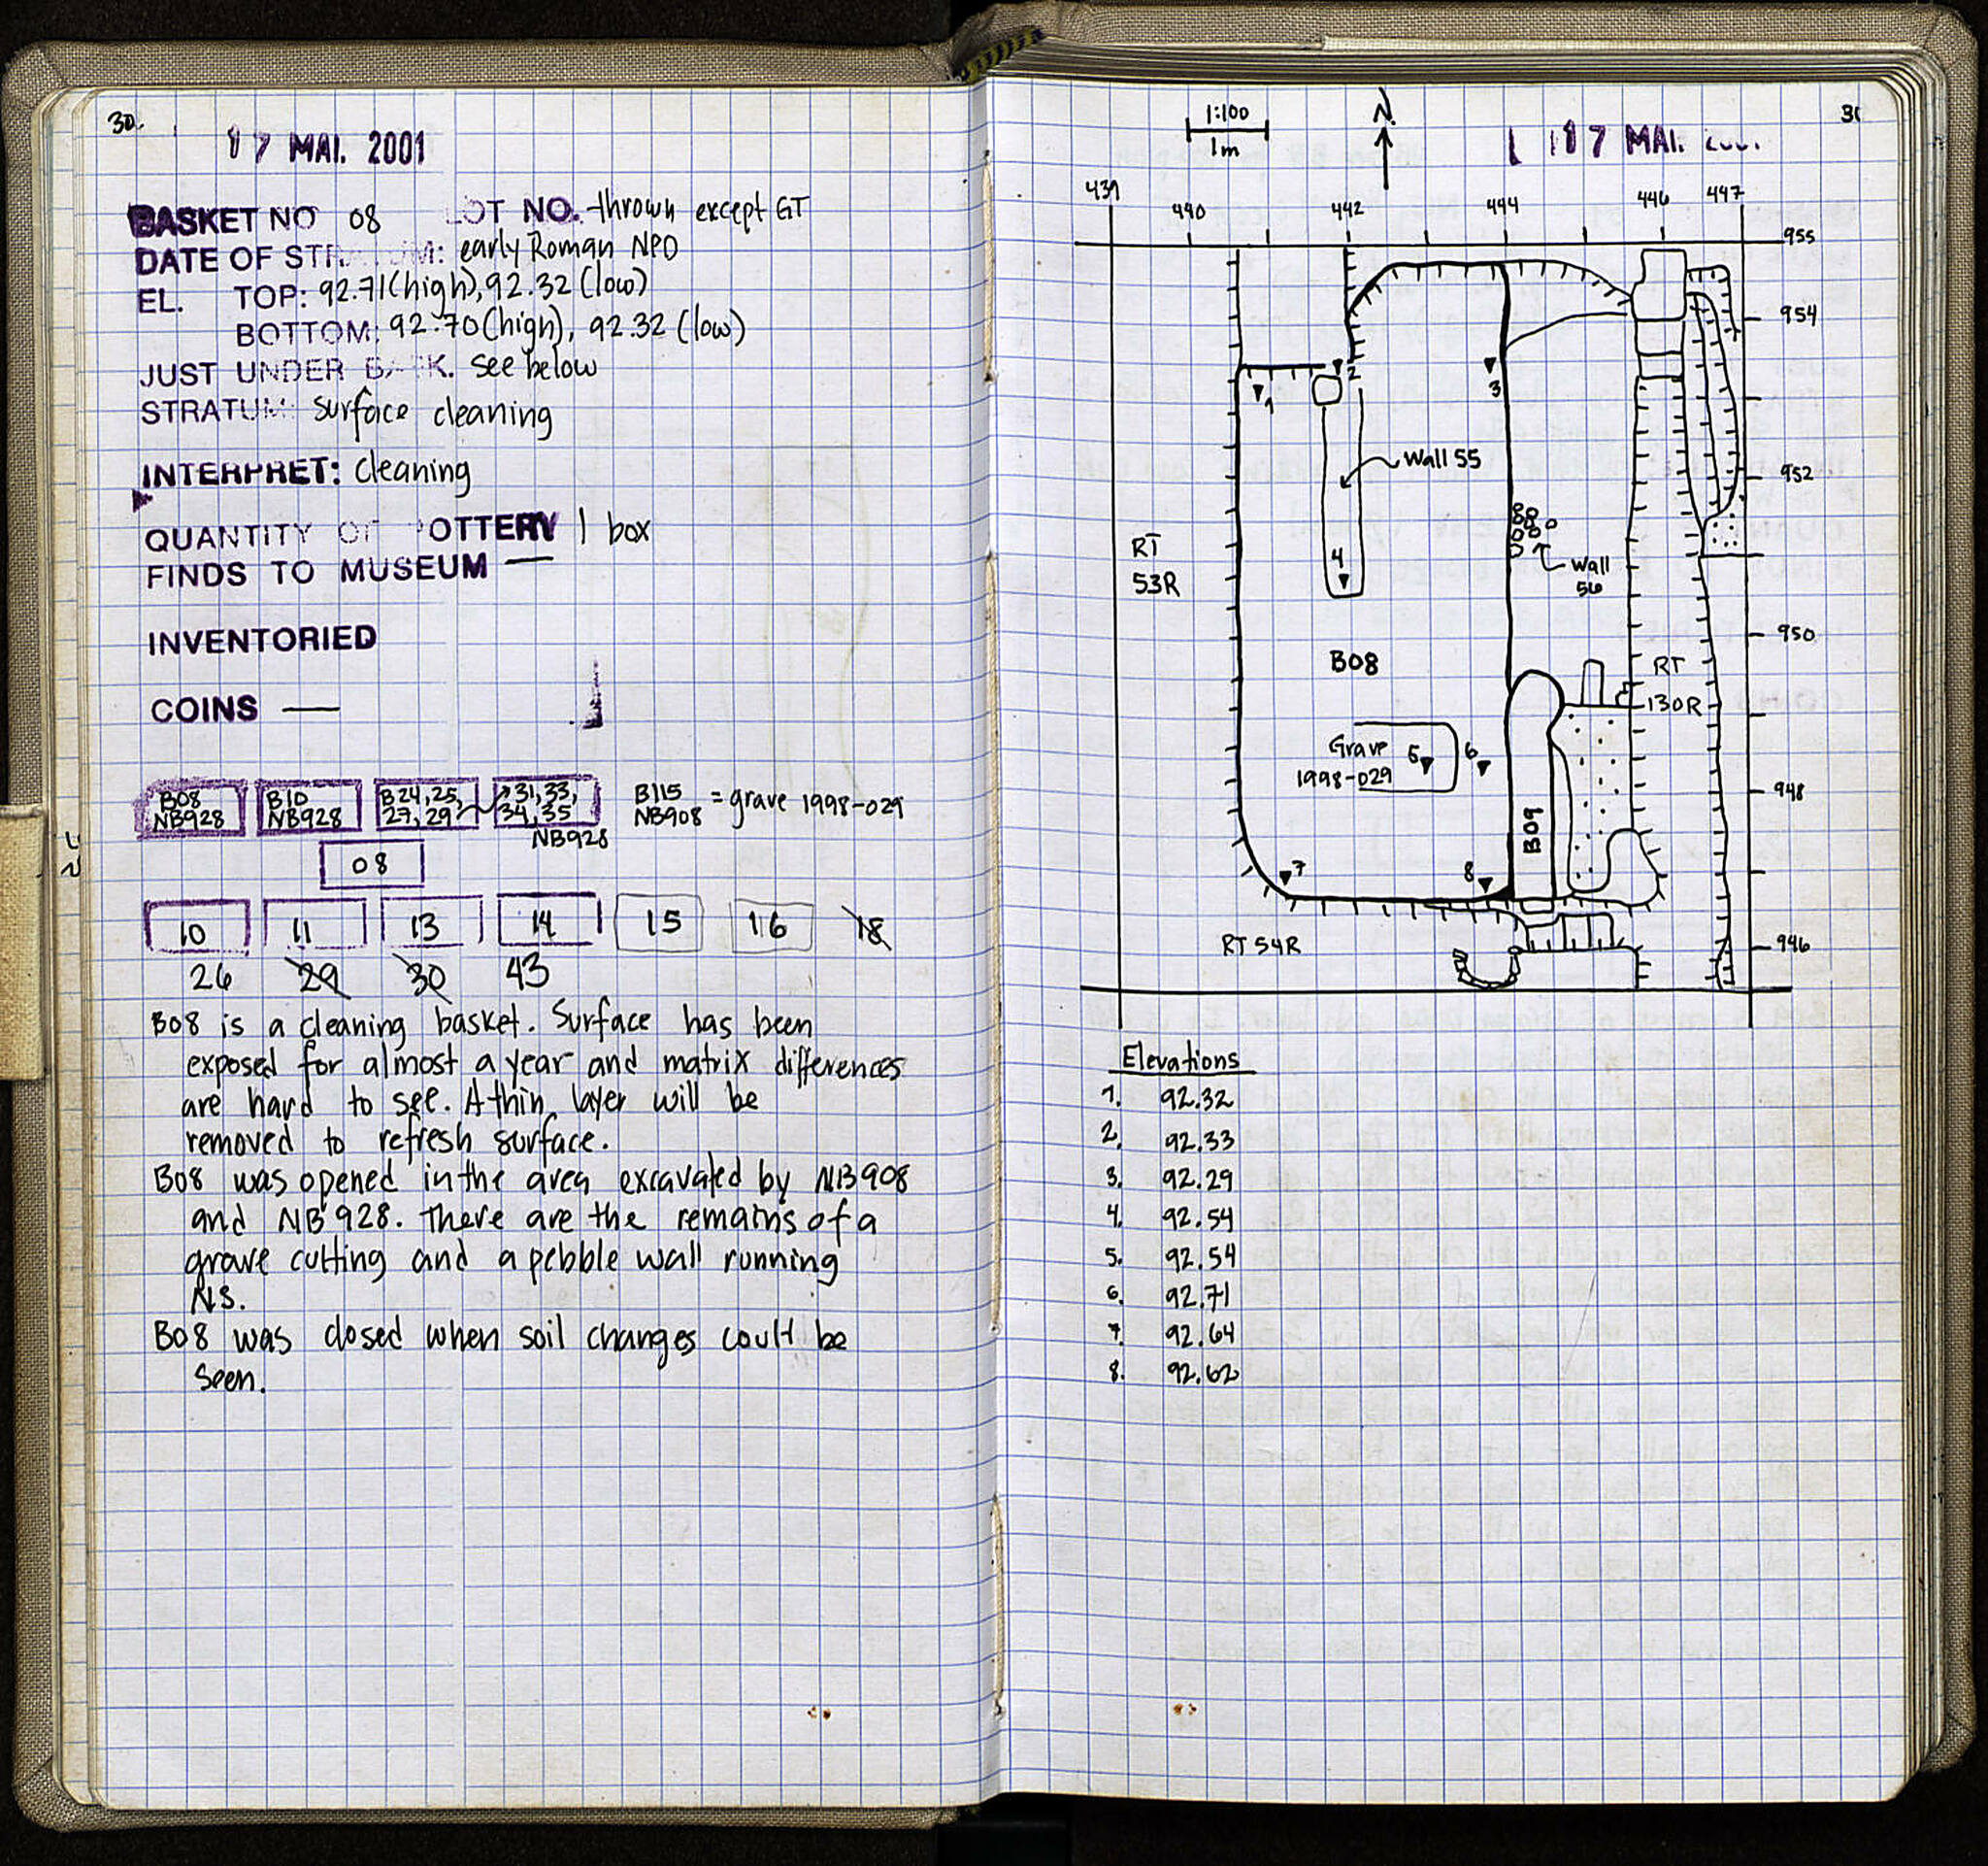 30.
17 MAI. 2001
BASKET NO 08 LOT NO. thrown except GT
DATE OF STRATUM: early Roman NPD
EL. TOP: 92.71(high), 92.32 (low)
BOTTOM: 92.70(high), 92.32 (low)
JUST UNDER BASK. see below
STRATUM: surface cleaning
INTERPRET: cleaning
QUANTITY OF POTTERY 1 box
FINDS TO MUSEUM —
INVENTORIED
COINS —
B08 NB928
B10 NB928
B24,25, 27,29
31,33, 34,35
NB928
B115 NB908 = grave 1998-029
08
10 11 13 14 15 16 18
26 29 30 43
B08 is a cleaning basket. Surface has been
exposed for almost a year and matrix differences
are hard to see. A thin layer will be
removed to refresh surface.
B08 was opened in the area excavated by NB908
and NB928. There are the remains of a
grave cutting and a pebble wall running
NS.
B08 was closed when soil changes could be
seen.
1:100
1m
N.
17 MAI.
439 440 442 444 446 447
955
954
952
950
948
946
1
2
3
Wall 55
4
Wall
56
RT
53R
B08
RT
130R
Grave
1998-029
5
6
B09
7
8
RT 54R
Elevations
1. 92.32
2. 92.33
3. 92.29
4. 92.54
5. 92.54
6. 92.71
7. 92.64
8. 92.62